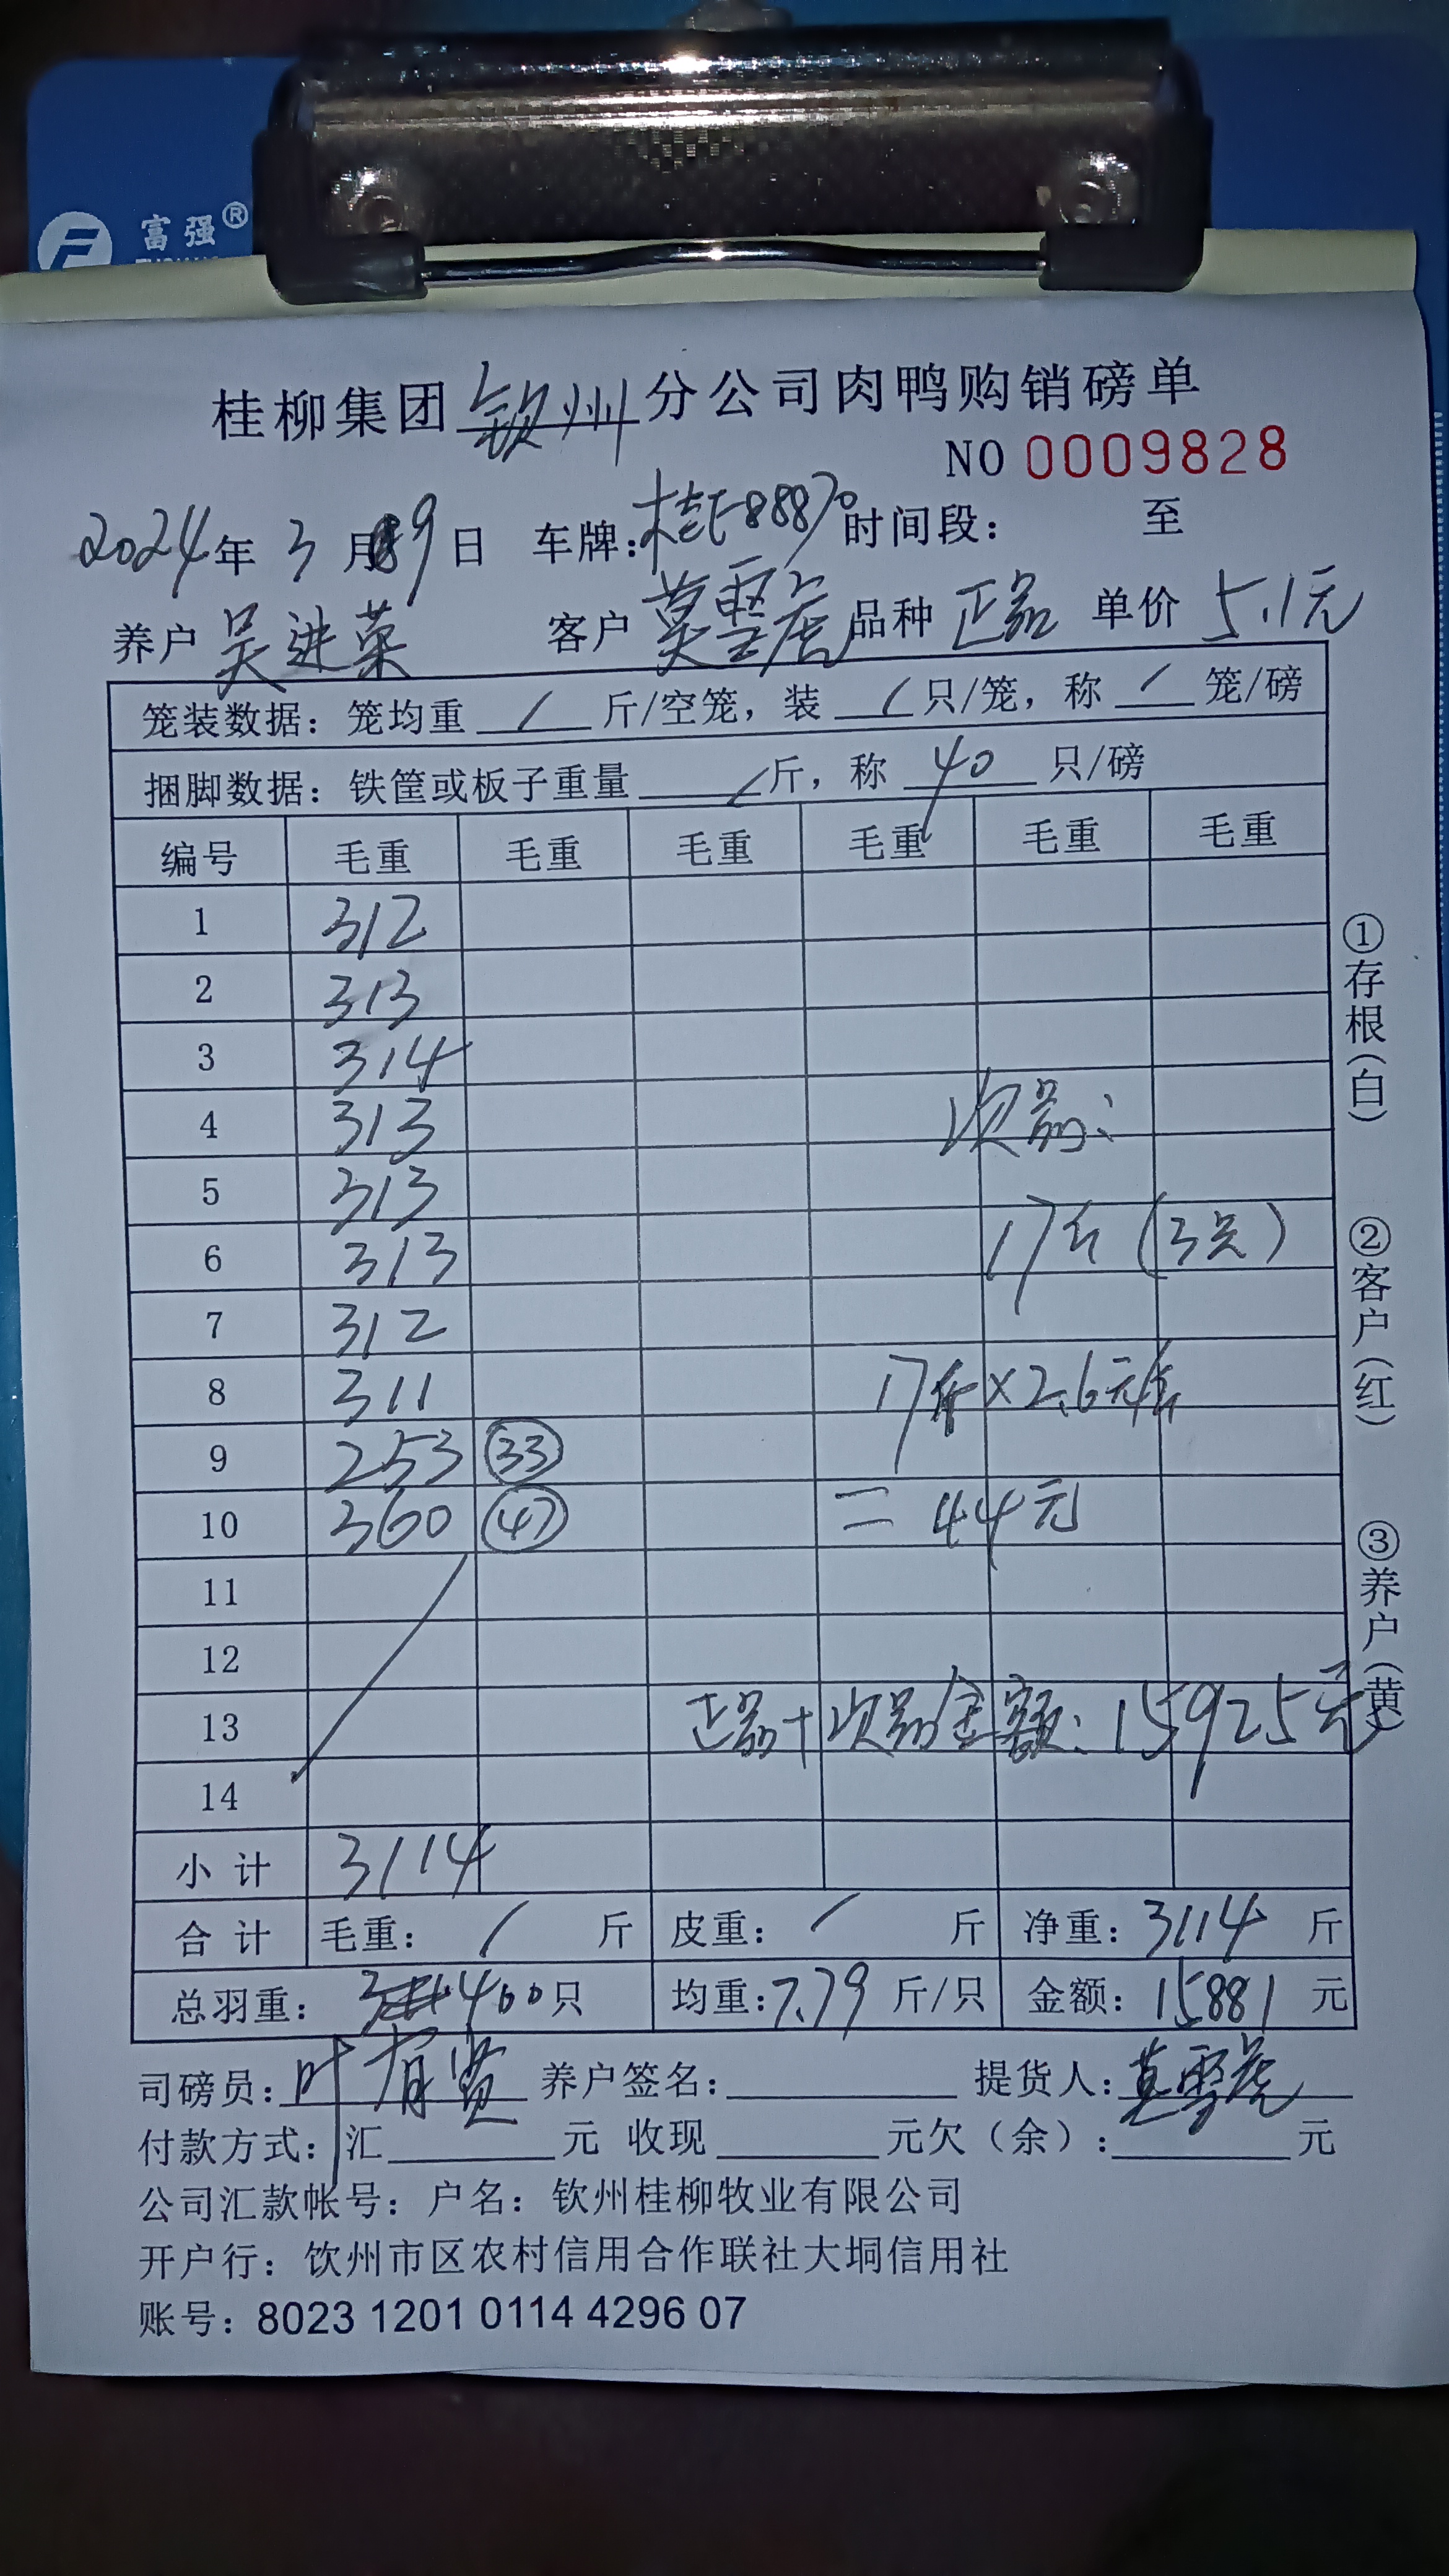 富强®
桂柳集团钦州分公司肉鸭购销磅单
NO 0009828
2024年3月9日 车牌:桂F88870 时间段: 至
养户 吴进荣 客户 莫雪虎 品种 正品 单价 5.1元
笼装数据: 笼均重 / 斤/空笼, 装 / 只/笼, 称 / 笼/磅
捆脚数据: 铁筐或板子重量 / 斤, 称 40 只/磅
编号 毛重 毛重 毛重 毛重 毛重 毛重
1 312
2 313
3 314
4 313 次品:
5 313
6 313 17斤(3只)
7 312
8 311 17斤×2.6元/斤
9 253 (33)
10 360 (47) = 44元
11
12
13 正品+次品金额: 15925元
14
小计 3114
合计 毛重: / 斤 皮重: / 斤 净重: 3114 斤
总羽重: 400只 均重: 7.79 斤/只 金额: 15881 元
司磅员: 叶有贤 养户签名: 提货人: 莫雪虎
付款方式: 汇 元 收现 元欠(余): 元
公司汇款帐号: 户名: 钦州桂柳牧业有限公司
开户行: 钦州市区农村信用合作联社大垌信用社
账号: 8023 1201 0114 4296 07
①存根(白) ②客户(红) ③养户(黄)